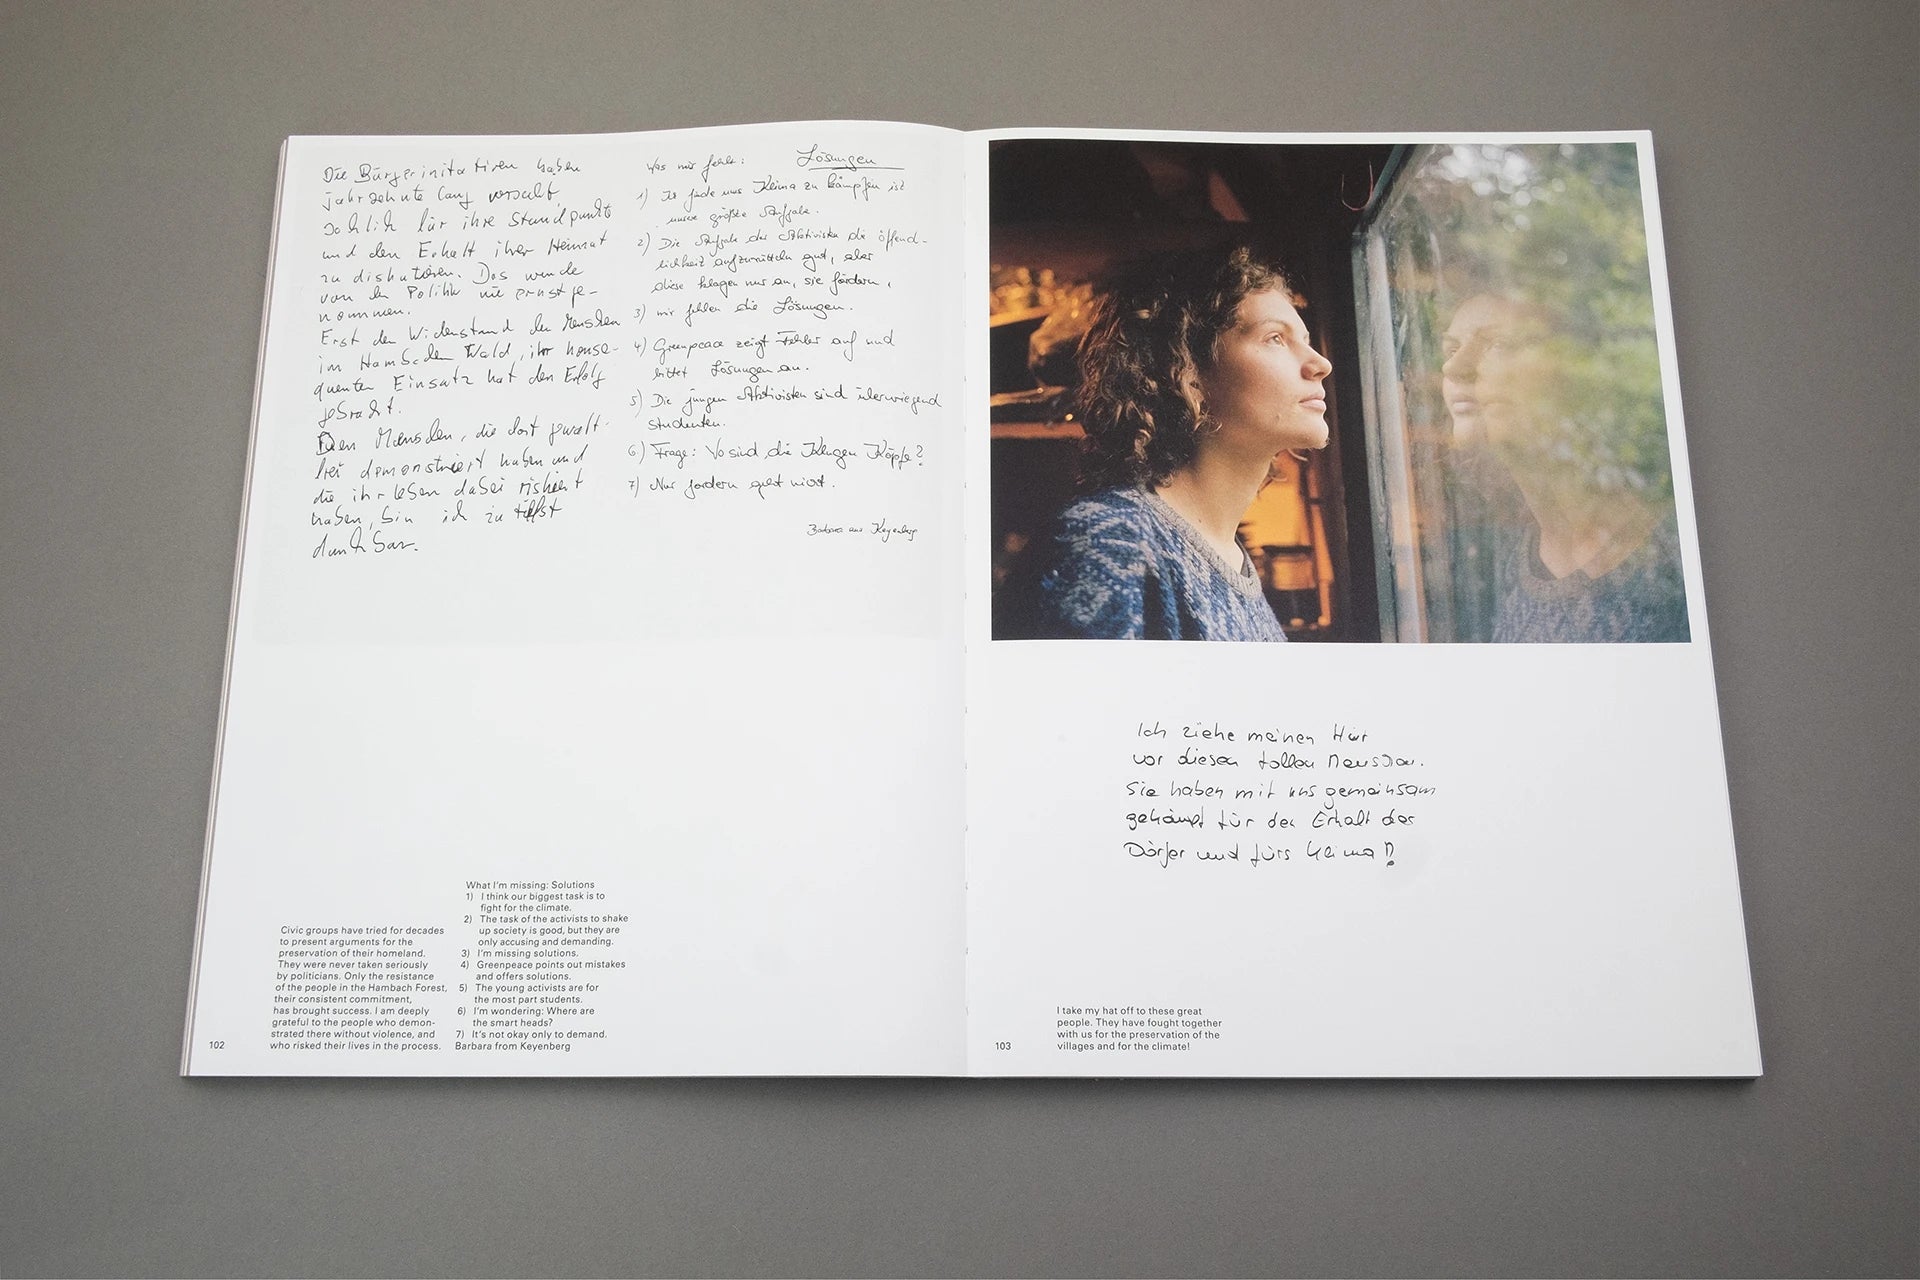 Die Bürgerinitiativen haben
jahrzehnte lang versucht,
sachlich für ihre Standpunkte
und den Erhalt ihrer Heimat
zu diskutieren. Das wurde
von der Politik nie ernst ge-
nommen.
Erst der Widerstand der Menschen
im Hambacher Wald, ihr konse-
quenter Einsatz hat den Erfolg
gebracht.
Den Menschen, die dort gewalt-
frei demonstriert haben und
die ihr Leben dabei riskiert
haben, bin ich zu tiefst
dankbar.
Was mir fehlt: Lösungen
1) Ich finde uns Klima zu kämpfen ist
unsere größte Aufgabe.
2) Die Aufgabe der Aktivisten die öffend-
lichkeit aufzurütteln gut, aber
diese klagen nur an, sie fordern,
3) mir fehlen die Lösungen.
4) Greenpeace zeigt Fehler auf und
bittet Lösungen an.
5) Die jungen Aktivisten sind überwiegend
Studenten.
6.) Frage: Wo sind die Klugen Köpfe?
7) Nur fordern geht nicht.
Barbara aus Keyenberg
Civic groups have tried for decades
to present arguments for the
preservation of their homeland.
They were never taken seriously
by politicians. Only the resistance
of the people in the Hambach Forest,
their consistent commitment,
has brought success. I am deeply
grateful to the people who demon-
strated there without violence, and
who risked their lives in the process.
What I'm missing: Solutions
1) I think our biggest task is to
fight for the climate.
2) The task of the activists to shake
up society is good, but they are
only accusing and demanding.
3) I'm missing solutions.
4) Greenpeace points out mistakes
and offers solutions.
5) The young activists are for
the most part students.
6) I'm wondering: Where are
the smart heads?
7) It's not okay only to demand.
Barbara from Keyenberg
102
Ich ziehe meinen Hut
vor diesen tollen Menschen.
Sie haben mit uns gemeinsam
gekämpft für den Erhalt der
Dörfer und fürs Klima!
I take my hat off to these great
people. They have fought together
with us for the preservation of the
villages and for the climate!
103